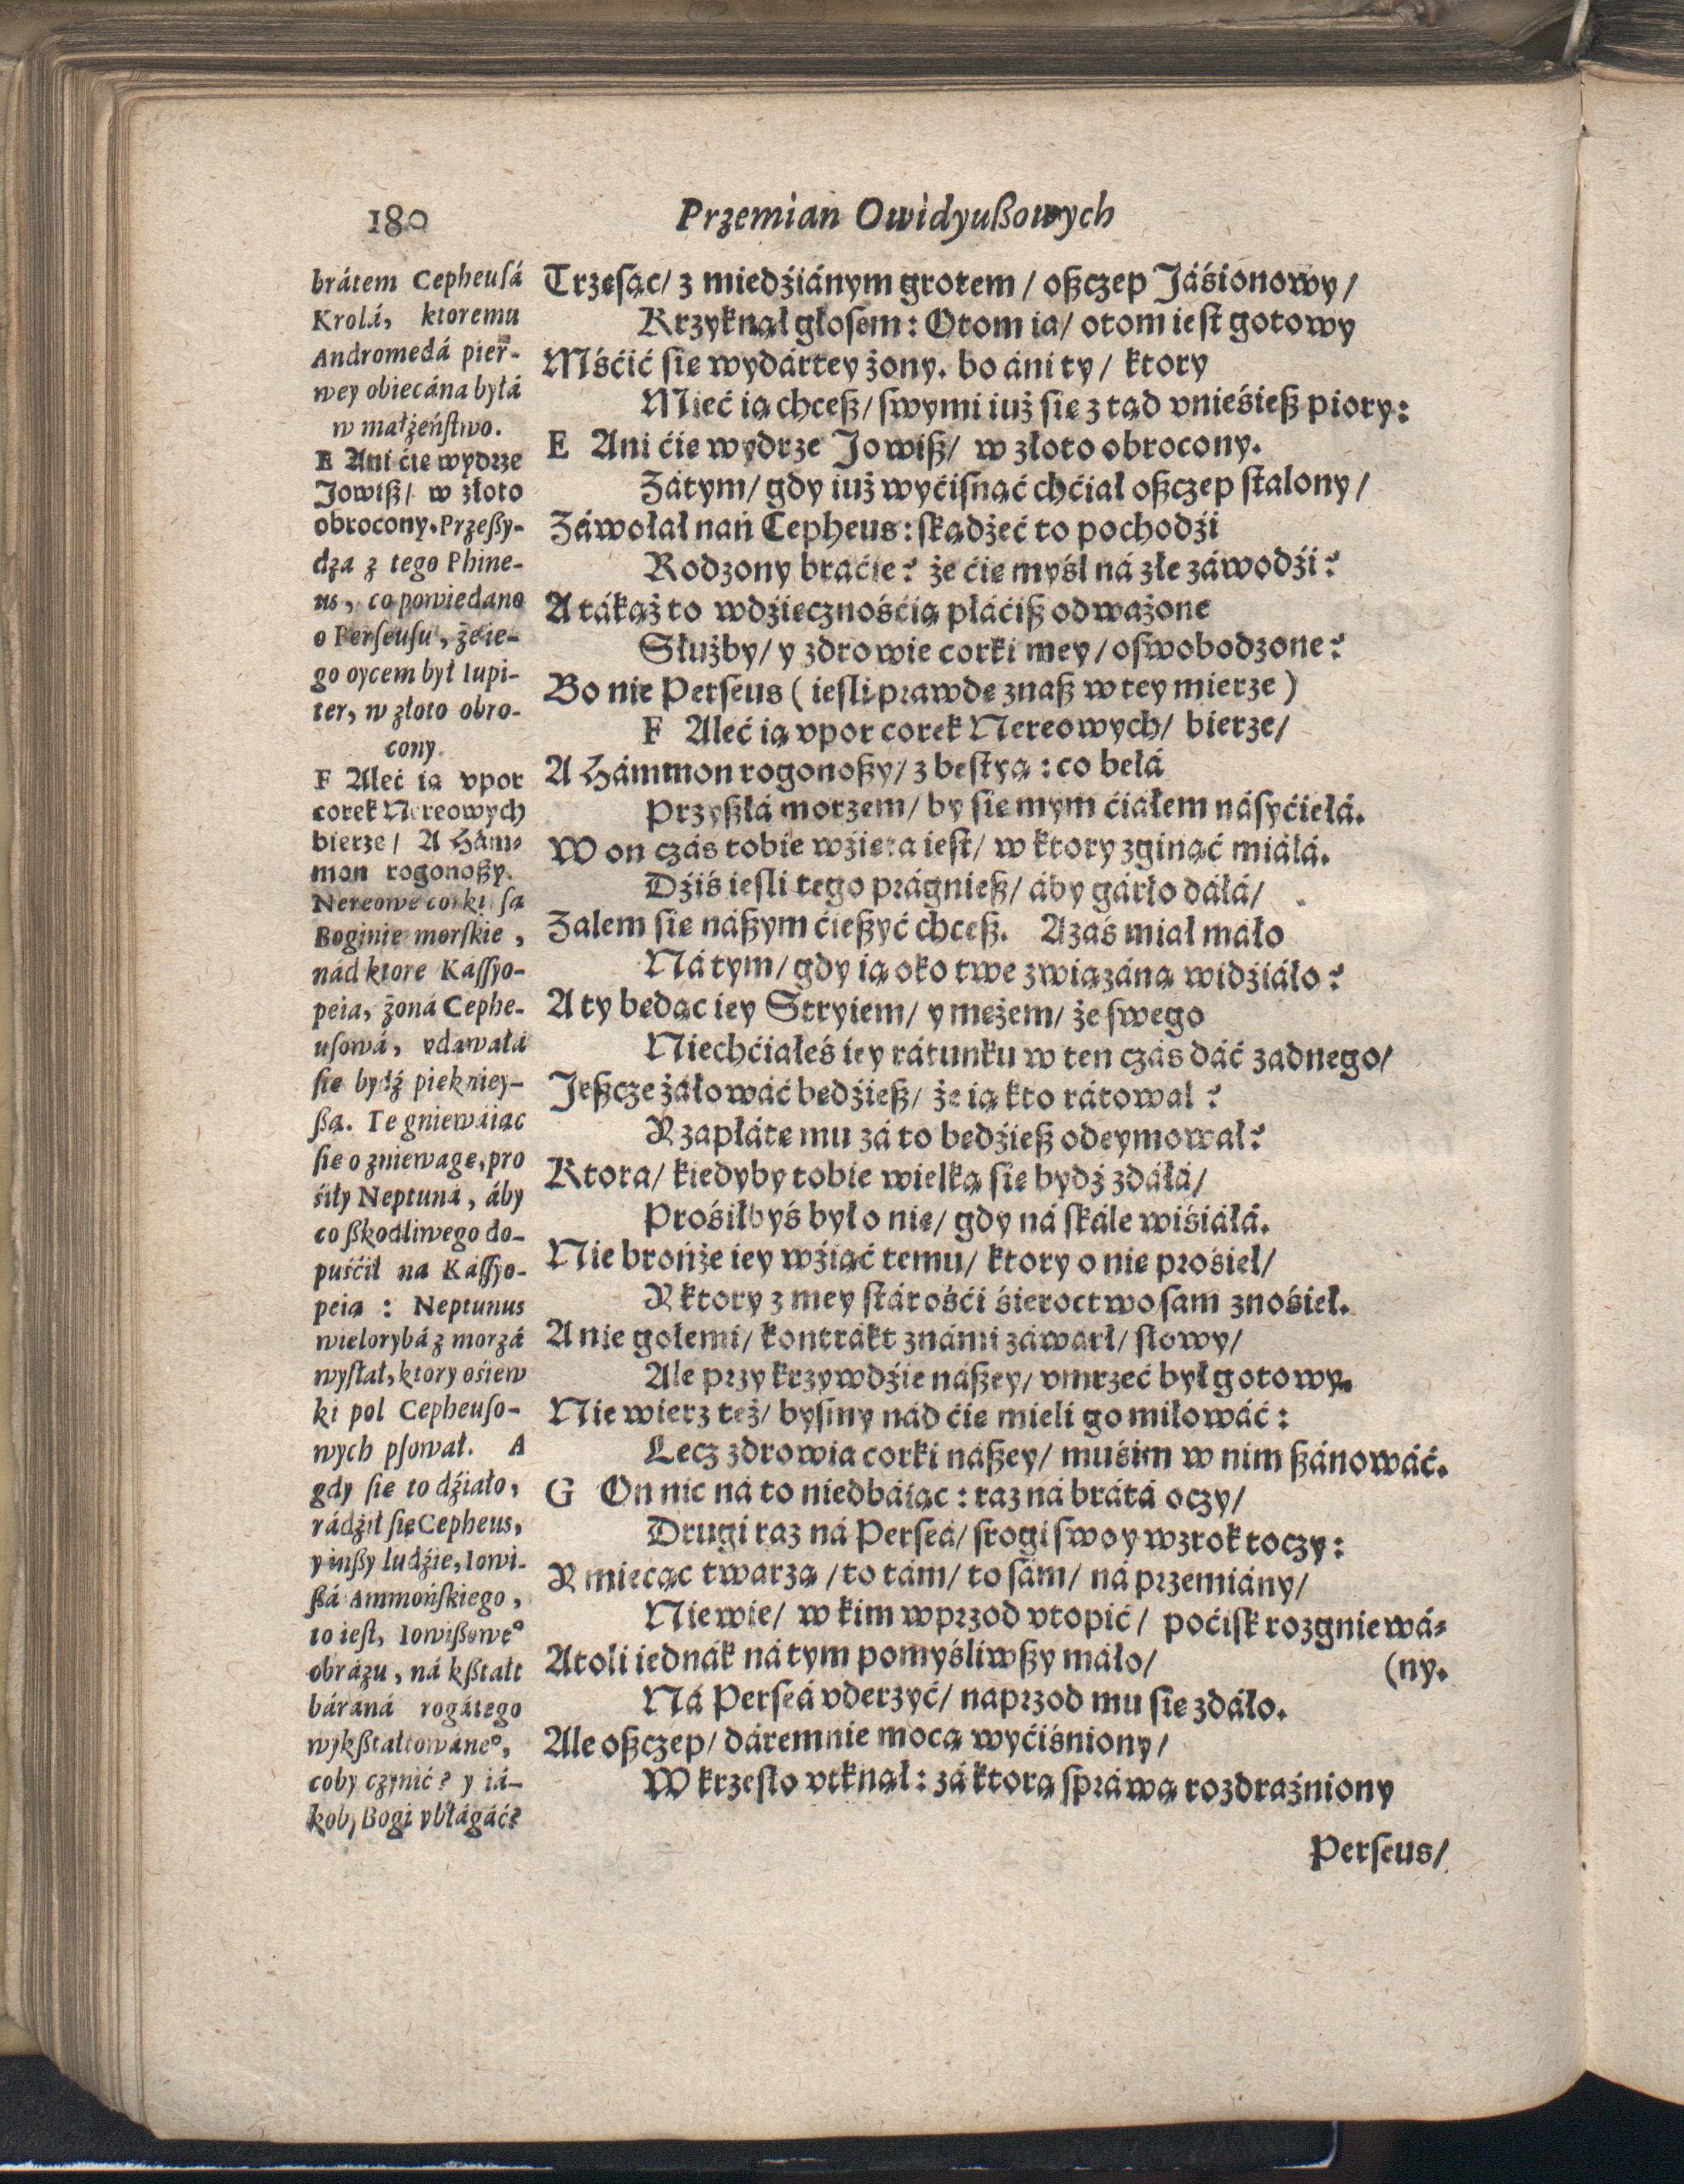 180
Przemian Owidyußowych
brátem Cepheuſá
Krolá, ktoremu
Andromedá pier-
wey obiecána byłá
w małżeńſtwo.
E Ani ćie wydrze
Jowiß/ w złoto
obrocony. Przeßy-
dza z tego Phine-
us, co powiedano
o Perſeuſu, że ie-
go oycem był Iupi-
ter, w złoto obro-
cony.
F Aleć ią vpor
corek Nereowych
bierze/ A Hám-
mon rogonoßy.
Nereowe corki ſą
Boginie morſkie,
nád ktore Káſſyo-
peia, żoná Cephe-
uſowá, vdawałá
ſie bydź piekniey-
ßą. Te gniewáiąc
ſie o zniewagę, pro
śiły Neptuná, áby
co ßkodliwego do-
puśćił na Káſſyo-
peią : Neptunus
wielorybá z morzá
wyſłał, ktory ośiew
ki pol Cepheuſo-
wych pſował. A
gdy ſie to dźiało,
rádźił ſię Cepheus,
y inßy ludźie, Iowi-
ßá Ammońſkiego,
to ieſt, Iowißowe°
obrázu, ná kßtałt
báraná rogátego
wykßtałtowáne°,
coby czynić? y iá-
koby Bogi vbłágáć?
Trzeſąc/ z miedźiánym grotem / oßczep Jáśionowy/
Krzyknął głoſem: Otom ia/ otom ieſt gotowy
Mśćić ſie wydártey żony. bo áni ty/ ktory
Mieć ią chceß/ ſwymi iuż ſię z tąd vnieśieß piory:
E Ani ćie wydrze Jowiß/ w złoto obrocony.
Zátym/ gdy iuż wyćiſnąć chćiał oßczep ſtalony/
Záwołał nań Cepheus: ſkądżeć to pochodźi
Rodzony braćie? że ćie myśl ná złe záwodźi?
A tákąż to wdźiecznośćią płáćiß odważone
Służby/ y zdrowie corki mey/ oſwobodzone?
Bo nie Perſeus ( ieſli prawdę znaß w tey mierze )
F Aleć ią vpor corek Nereowych/ bierze/
A Hámmon rogonoßy/ z beſtyą : co belá
Przyßłá morzem/ by ſie mym ćiáłem náſyćiełá.
W on czás tobie wźięta ieſt/ w ktory zginąć miáłá.
Dźiś ieſli tego prágnieß/ áby gárło dáłá/
Zalem ſie náßym ćießyć chceß. Azaś miał máło
Ná tym/ gdy ią oko twe związáną widźiáło?
A ty bedąc iey Stryiem/ y mężem/ że ſwego
Niechćiałeś iey rátunku w ten czás dáć żadnego/
Jeßcze żáłowáć będźieß/ że ią kto rátował ?
Y zapłátę mu zá to będźieß odeymował?
Ktora/ kiedyby tobie wielką ſię bydź zdáłá/
Prośiłbyś był o nię/ gdy ná ſkále wiśiáłá.
Nie brońże iey wźiąć temu/ ktory o nię prośieł/
Y ktory z mey ſtárośći śieroctwo ſam znośieł.
A nie gołemi/ kontrákt z námi záwarł/ ſłowy/
Ale przy krzywdźie náßey/ vmrzeć był gotowy.
Nie wierz też/ byſmy nád ćie mieli go miłowáć:
Lecz zdrowia corki náßey/ muśim w nim ßánowáć.
G On nic ná to niedbáiąc : raz ná brátá oczy/
Drugi raz ná Perſeá/ ſrogi ſwoy wzrok toczy:
Y miecąc twarzą / to tám/ to ſám/ ná przemiány/
Nie wie/ w kim wprzod vtopić/ poćiſk rozgniewá-
Atoli iednák ná tym pomyśliwßy máło/ (ny.
Ná Perſeá vderzyć/ naprzod mu ſie zdáło.
Ale oßczep/ dáremnie mocą wyćiśniony/
W krzeſło vtknął : zá ktorą ſpráwą rozdraźniony
Perſeus/